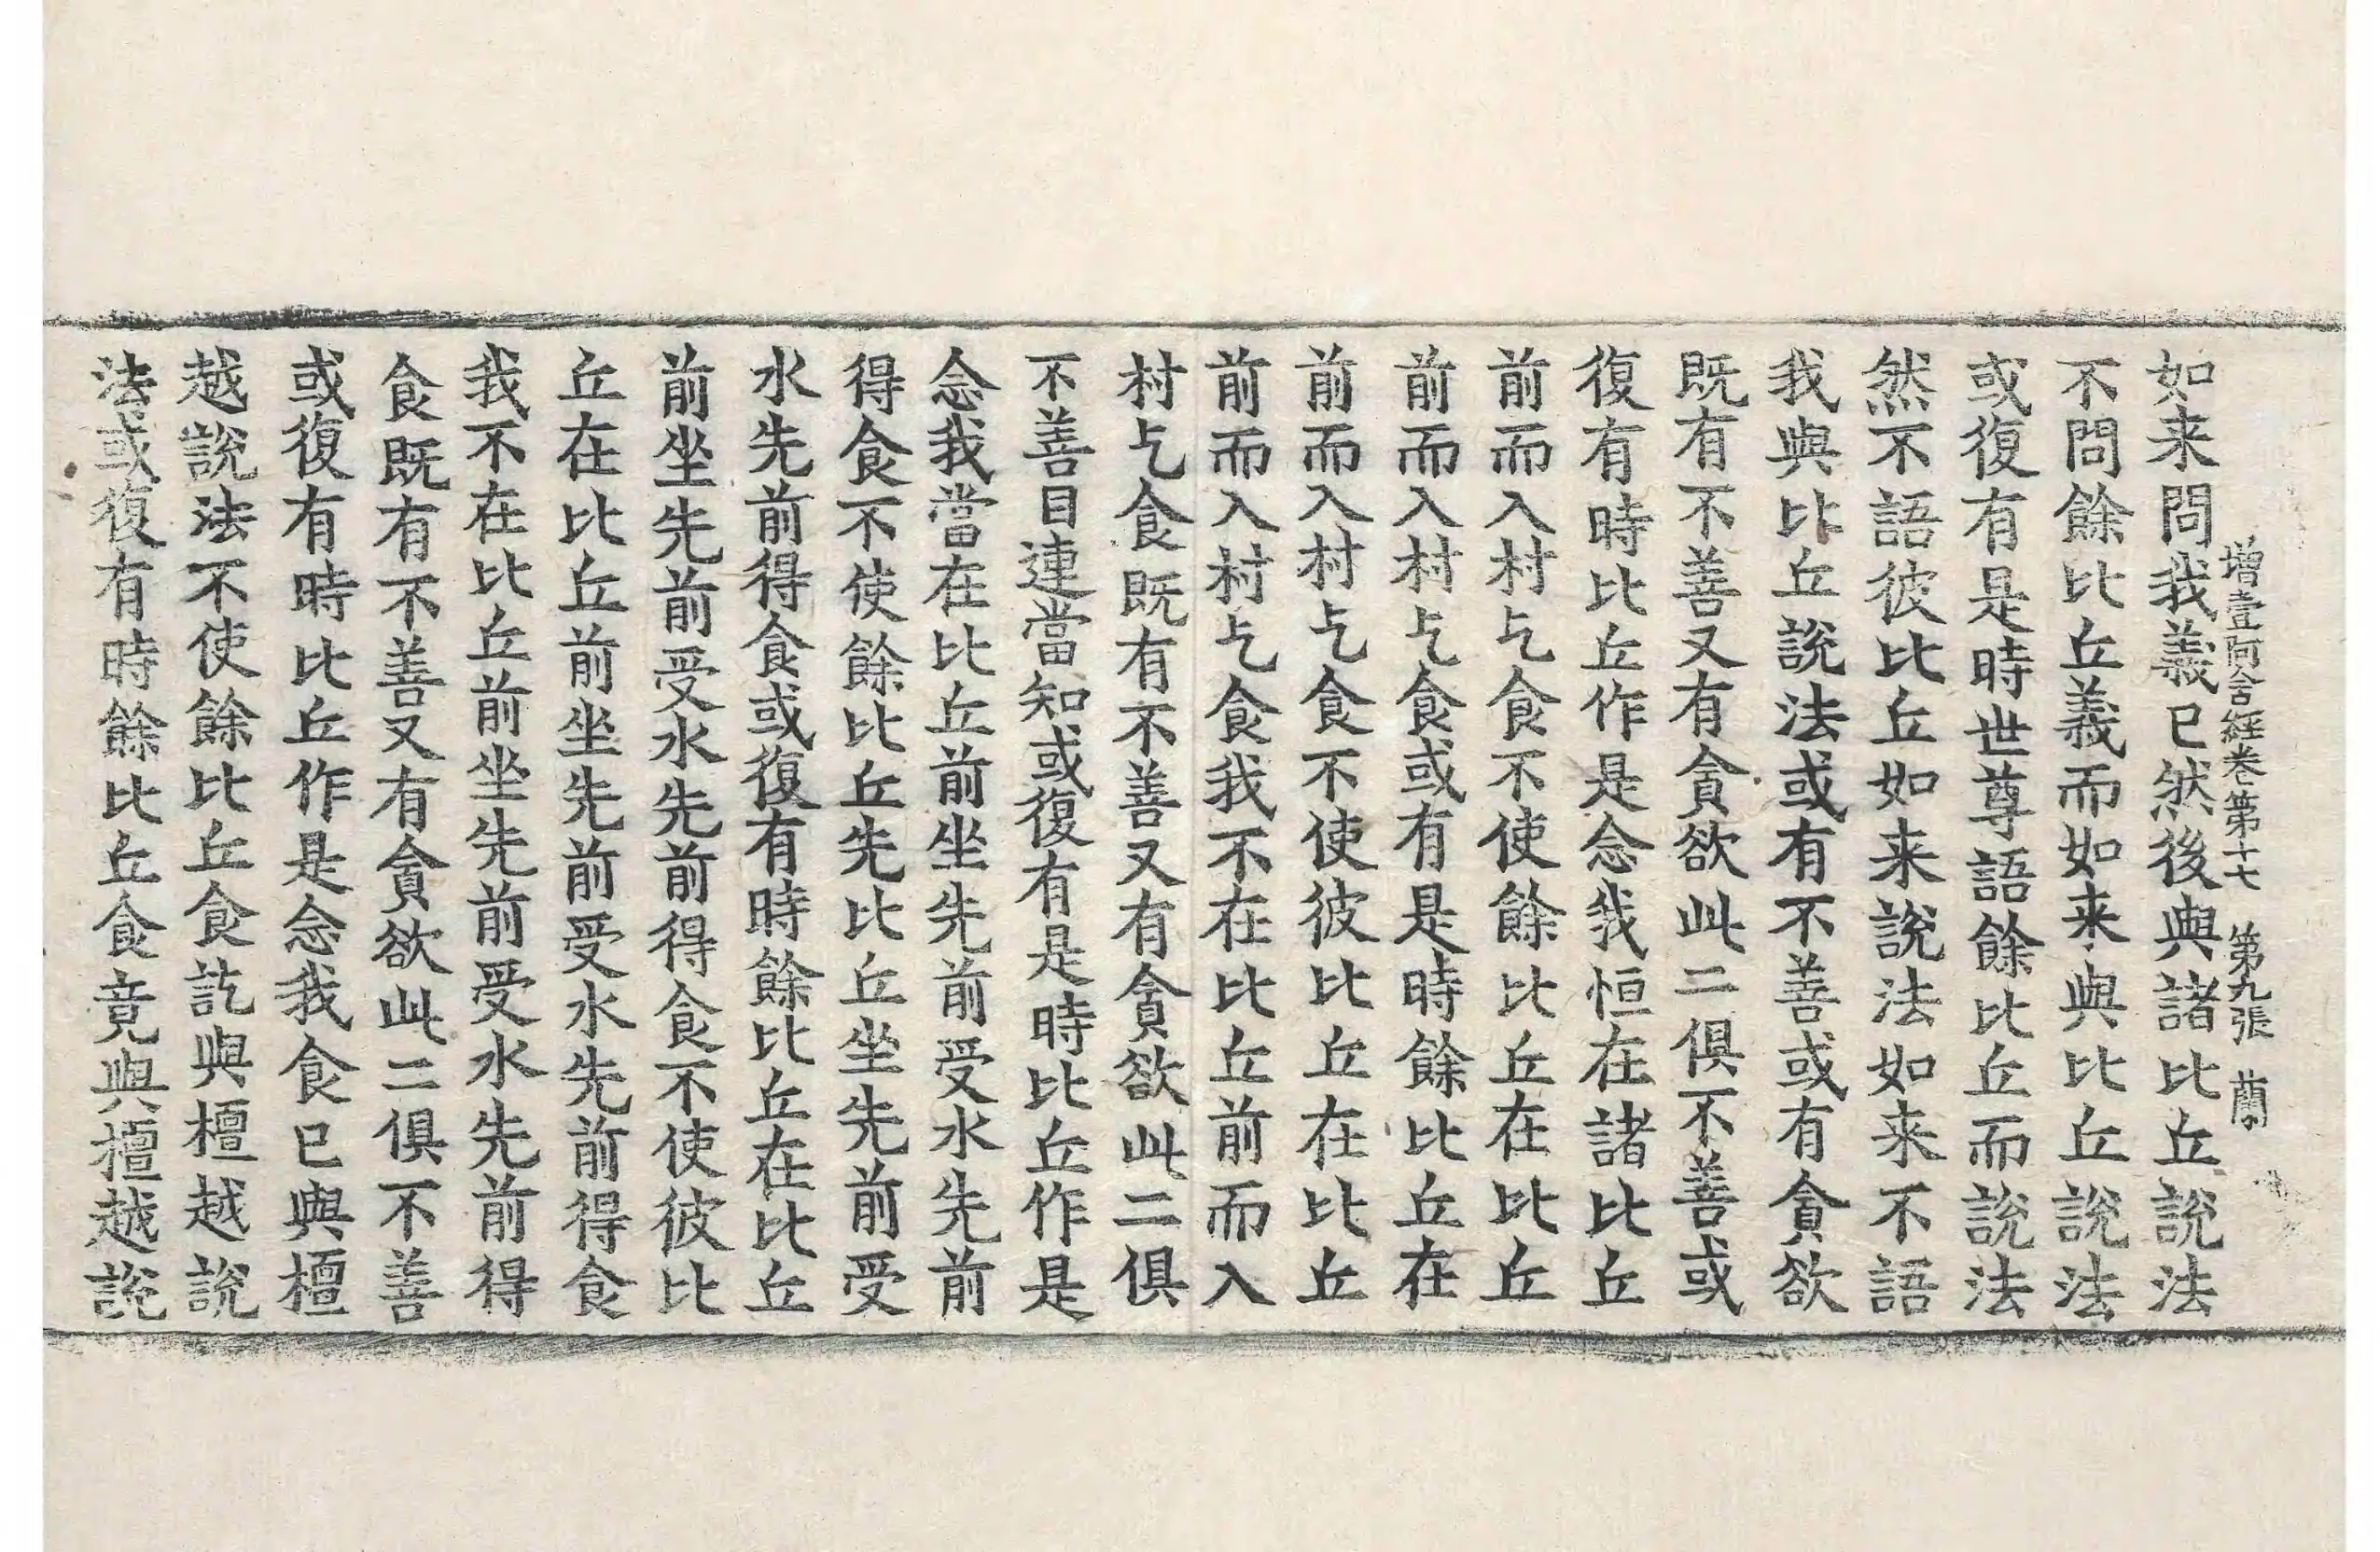 增壹阿含經卷第十七　第九張　蘭
如来問我義已然後與諸比丘說法
不問餘比丘義而如来與比丘說法
或復有是時世尊語餘比丘而說法
然不語彼比丘如来說法如来不語
我與比丘說法或有不善或有貪欲
既有不善又有貪欲此二俱不善或
復有時比丘作是念我恒在諸比丘
前而入村乞食不使餘比丘在比丘
前而入村乞食或有是時餘比丘在
前而入村乞食不使彼比丘在比丘
前而入村乞食我不在比丘前而入
村乞食既有不善又有貪欲此二俱
不善目連當知或復有是時比丘作是
念我當在比丘前坐先前受水先前
得食不使餘比丘先比丘坐先前受
水先前得食或復有時餘比丘在比丘
前坐先前受水先前得食不使彼比
丘在比丘前坐先前受水先前得食
我不在比丘前坐先前受水先前得
食既有不善又有貪欲此二俱不善
或復有時比丘作是念我食已與檀
越說法不使餘比丘食訖與檀越說
法或復有時餘比丘食竟與檀越說